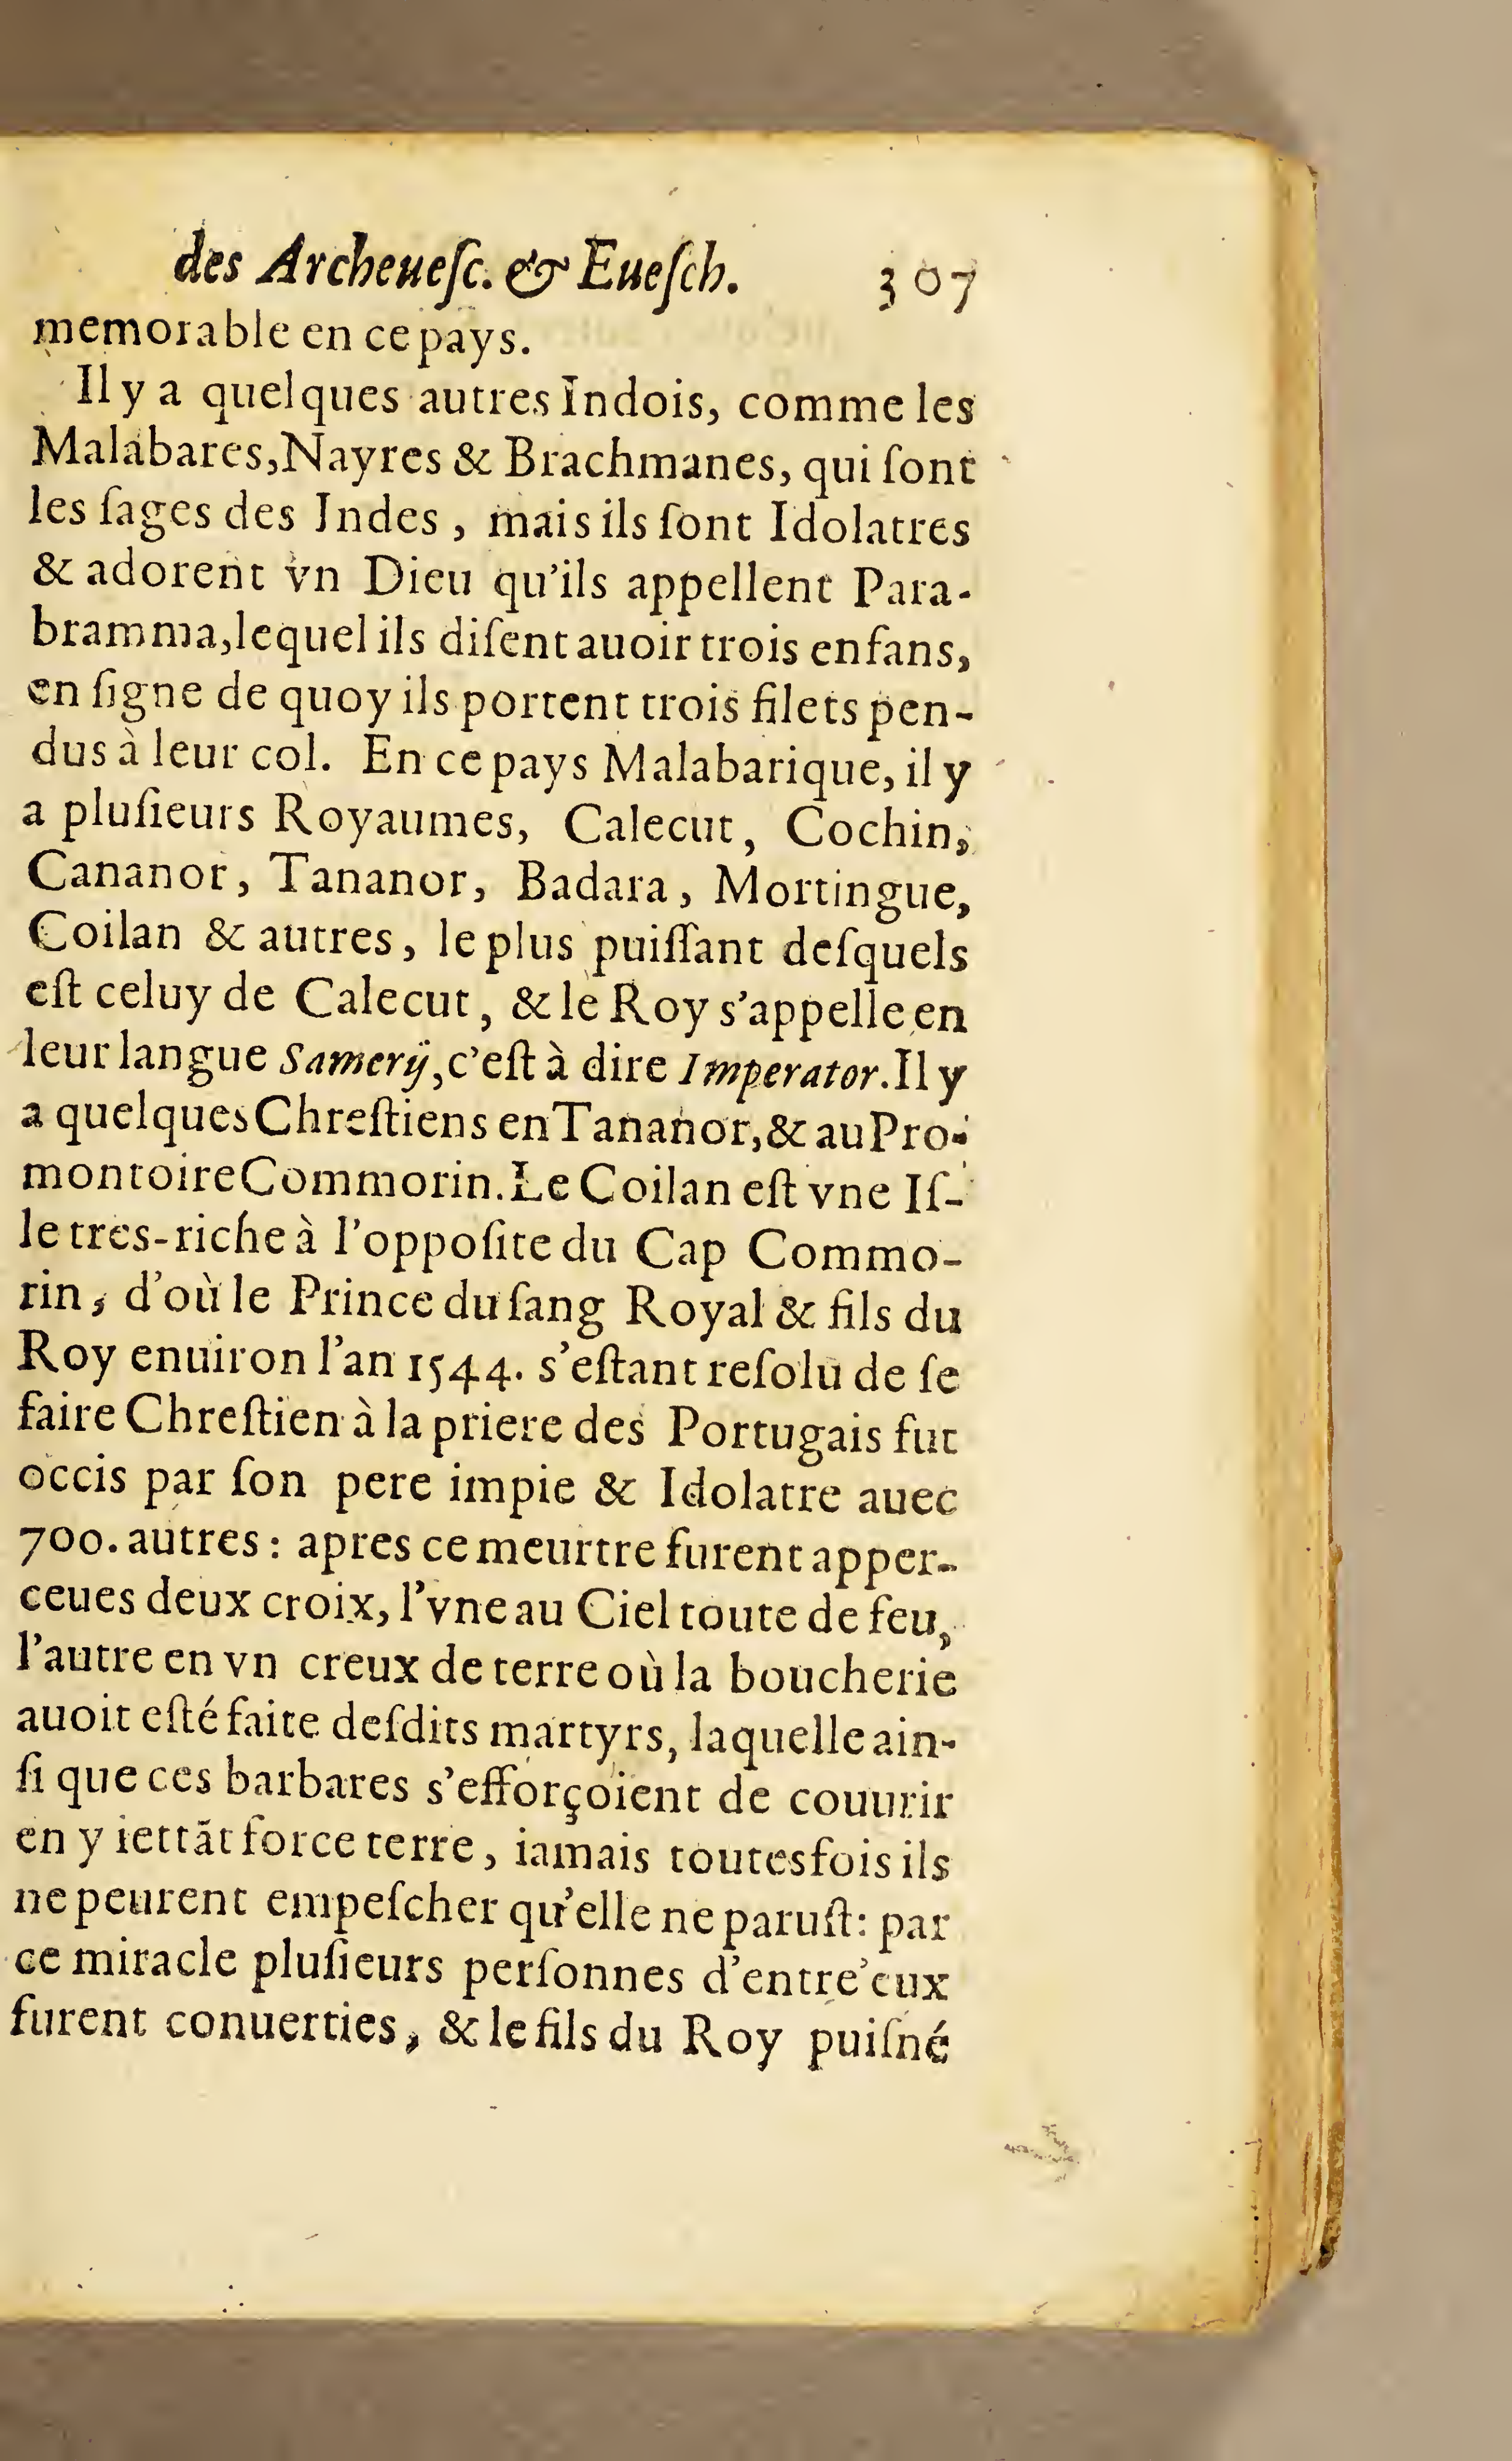 des Archeueſc. & Eueſch. 307
memorable en ce pays.
Il y a quelques autres Indois, comme les
Malabares, Nayres & Brachmanes, qui ſont
les ſages des Indes, mais ils ſont Idolatres
& adorent vn Dieu qu'ils appellent Para-
bramma, lequel ils diſent auoir trois enfans,
en ſigne de quoy ils portent trois filets pen-
dus à leur col. En ce pays Malabarique, il y
a pluſieurs Royaumes, Calecut, Cochin,
Cananor, Tananor, Badara, Mortingue,
Coilan & autres, le plus puiſſant deſquels
eſt celuy de Calecut, & le Roy s'appelle en
leur langue Samerÿ, c'eſt à dire Imperator. Il y
a quelques Chreſtiens en Tananor, & au Pro-
montoire Commorin. Le Coilan eſt vne Iſ-
le tres-riche à l'oppoſite du Cap Commo-
rin, d'où le Prince du ſang Royal & fils du
Roy enuiron l'an 1544. s'eſtant reſolu de ſe
faire Chreſtien à la priere des Portugais fut
occis par ſon pere impie & Idolatre auec
700. autres : apres ce meurtre furent apper-
ceues deux croix, l'vne au Ciel toute de feu,
l'autre en vn creux de terre où la boucherie
auoit eſté faite deſdits martyrs, laquelle ain-
ſi que ces barbares s'efforçoient de couurir
en y iettāt force terre, iamais toutesfois ils
ne peurent empeſcher qu'elle ne paruſt: par
ce miracle pluſieurs perſonnes d'entre'eux
furent conuerties, & le fils du Roy puiſné